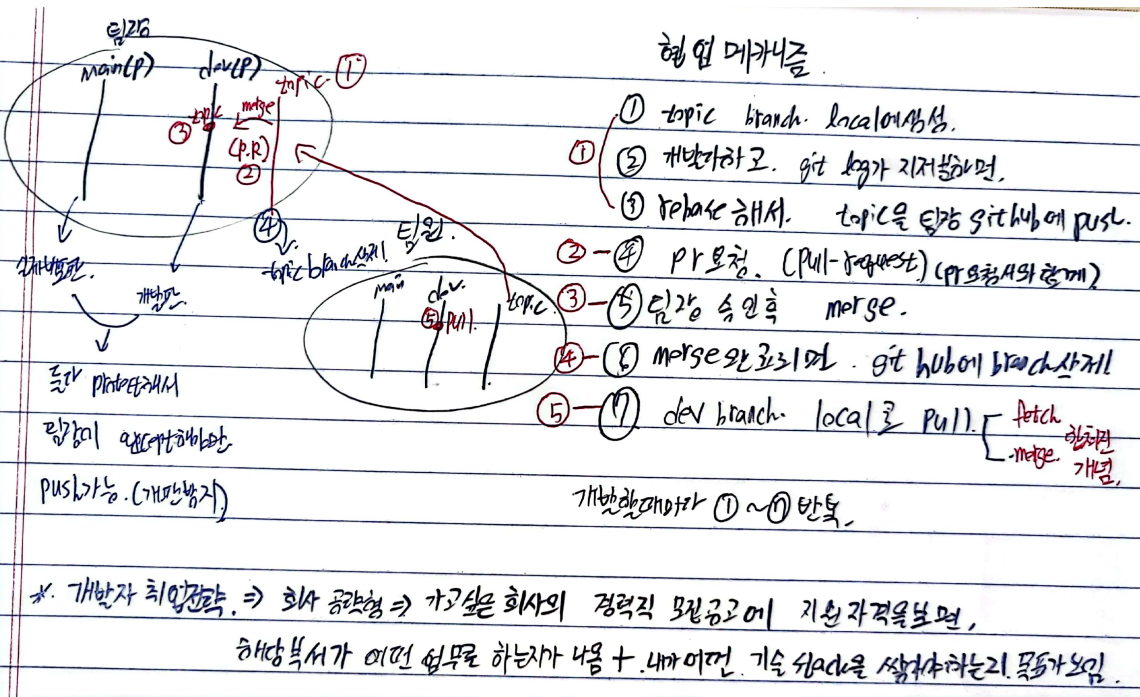 팀장
main(P) dev(P) topic ①
merge
③ topic
(P.R)
②
④
topic branch 삭제!
개발판
둘다 protect해서
팀장이 해야만
push가능. (개판방지)
팀원.
main dev. topic
⑤ pull.
협업 메카니즘.
① topic branch. local에 생성.
① ② 개발다하고. git log가 지저분하면,
③ rebase 해서. topic을 팀장 github에 push.
② - ④ pr 요청. (pull-request) (pr요청서와 함께)
③ - ⑤ 팀장 승인후 merge.
④ - ⑥ merge완료되면. git hub에 branch삭제!
⑤ - ⑦ dev branch. local로 pull. fetch
merge. 합쳐진
개념.
개발할때마다 ①~⑦ 반복.
※. 개발자 취업전략. ⇒ 회사 공략형 ⇒ 가고싶은 회사의 경력직 모집공고에 지원자격을보면,
해당부서가 어떤 업무를 하는지가 나옴 + 내가 어떤. 기술 stack을 쌓아야하는지. 목표가 보임.